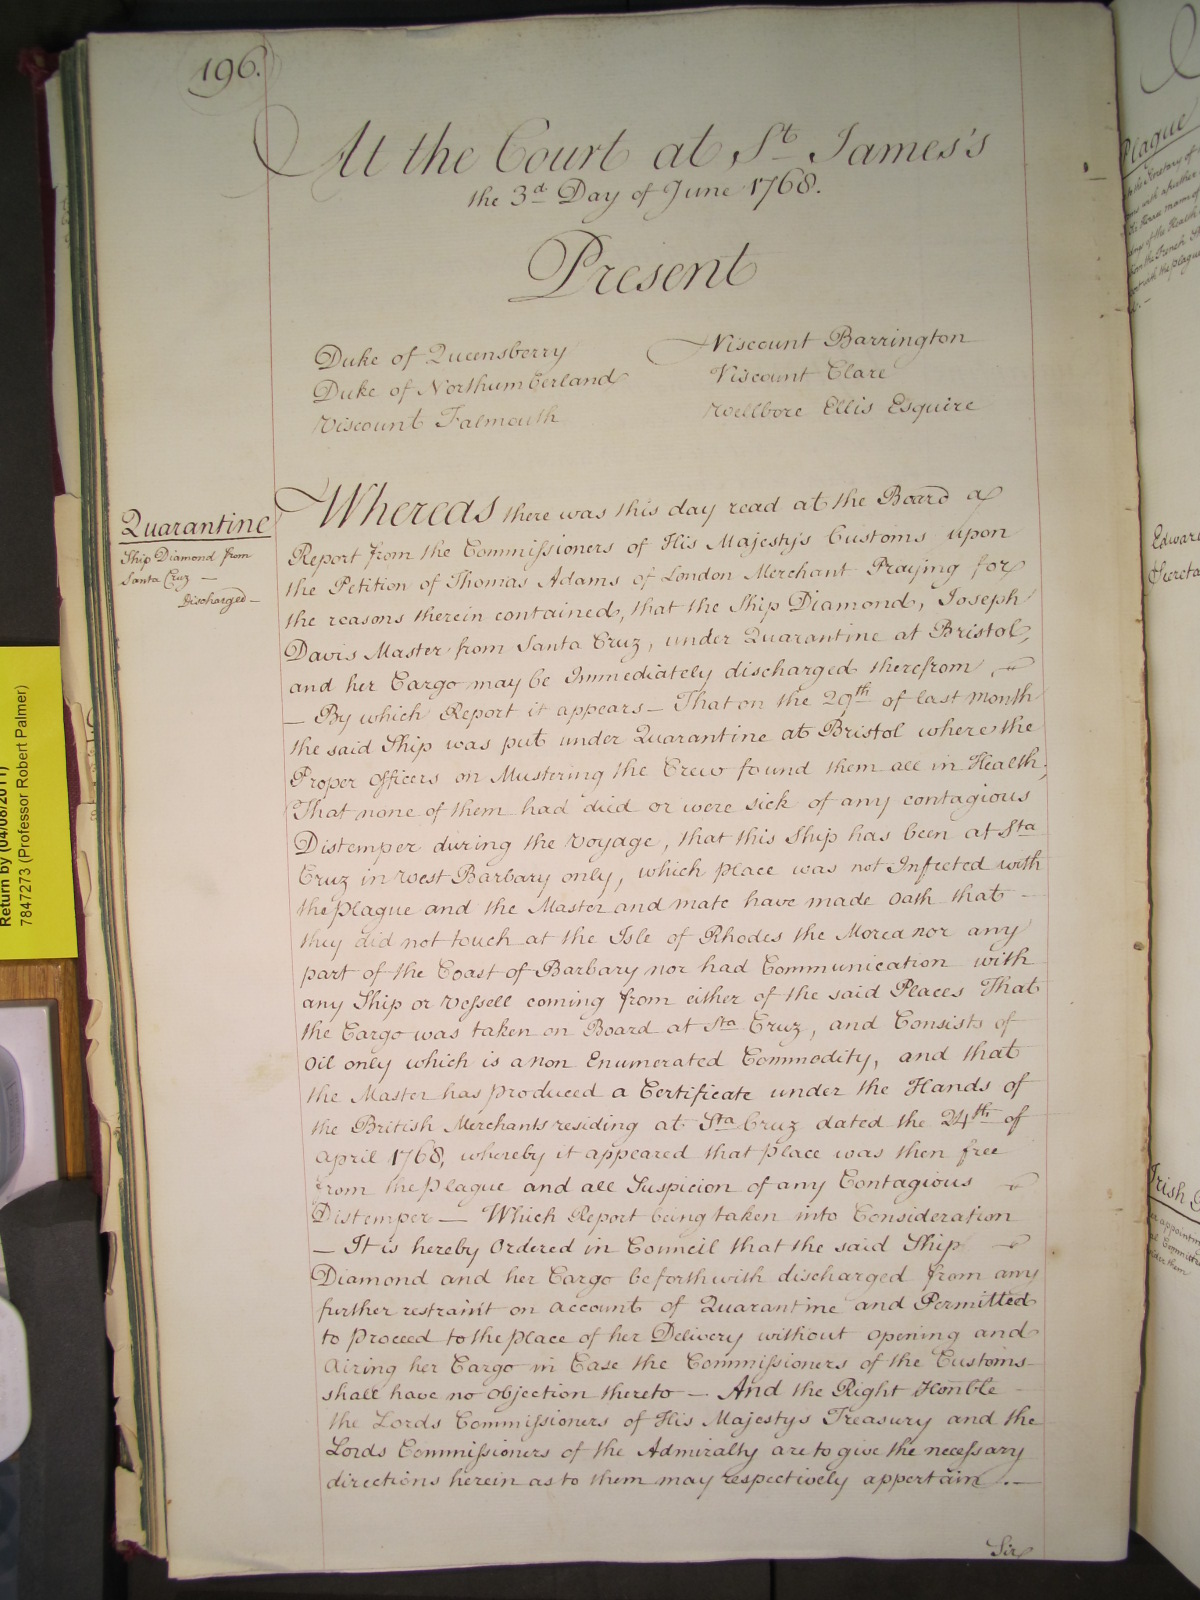 196.
At the Court at St James's
the 3d Day of June 1768.
Present
Duke of Queensberry
Duke of Northumberland
Viscount Falmouth
Viscount Barrington
Viscount Clare
Wellbore Ellis Esquire
Quarantine
Ship Diamond from
Santa Cruz —
Discharged —
Whereas there was this day read at the Board a
Report from the Commissioners of His Majesty's Customs upon
the Petition of Thomas Adams of London Merchant Praying for
the reasons therein contained, that the Ship Diamond, Joseph
Davis Master from Santa Cruz, under Quarantine at Bristol,
and her Cargo may be Immediately discharged therefrom
— By which Report it appears — That on the 29th of last month
the said Ship was put under Quarantine at Bristol where the
Proper Officers on Mustering the Crew found them all in Health,
That none of them had died or were sick of any contagious
Distemper during the Voyage, that this Ship has been at Sta
Cruz in West Barbary only, which place was not Infected with
the Plague and the Master and mate have made oath that —
they did not touch at the Isle of Rhodes the Morea nor any
part of the Coast of Barbary nor had Communication with
any Ship or Vessell coming from either of the said Places That
the Cargo was taken on Board at Sta Cruz, and Consists of
Oil only which is a non Enumerated Commodity, and that
the Master has produced a Certificate under the Hands of
the British Merchants residing at Sta Cruz dated the 24th of
April 1768, whereby it appeared that place was then free
from the plague and all Suspicion of any Contagious
Distemper — Which Report being taken into Consideration
— It is hereby Ordered in Council that the said Ship
Diamond and her Cargo be forthwith discharged from any
further restraint on account of Quarantine and Permitted
to Proceed to the place of her Delivery without opening and
Airing her Cargo in Case the Commissioners of the Customs
shall have no objection thereto — And the Right Honble
the Lords Commissioners of His Majestys Treasury and the
Lords Commissioners of the Admiralty are to give the necessary
directions herein as to them may respectively appertain . —
Sir
Return by (04/08/2011)
7847273 (Professor Robert Palmer)
Plague
Edward
Secreta
Irish